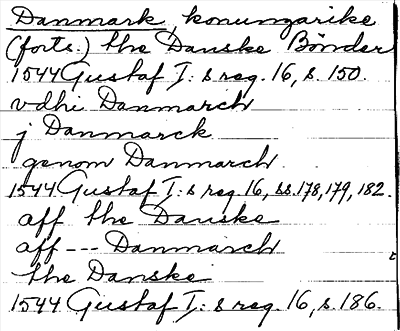 Danmark, konungarike
(forts.) the Danske Bönder
1544 Gustaf I: s reg. 16, s. 150.
vdhi Danmarch
j Danmarck
genom Danmarch
1544 Gustaf I: s reg. 16, ss. 178, 179, 182.
aff the Danske
aff --- Danmarch
the Danske
1544 Gustaf I: s reg. 16, s. 186.